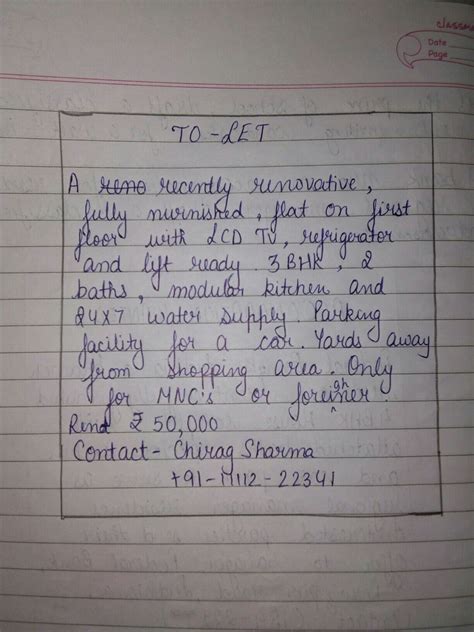 classmate
Date
Page
TO-LET
A reno recently renovative,
fully nurnished, flat on first
floor with LCD TV, refrigerator
and lift ready. 3 BHK, 2
baths, modular kitchen and
24X7 water supply. Parking
facility for a car. Yards away
from shopping area. Only
for MNC's or foreighner
Rend ₹ 50,000
Contact- Chirag Sharma
+91-11112-22341